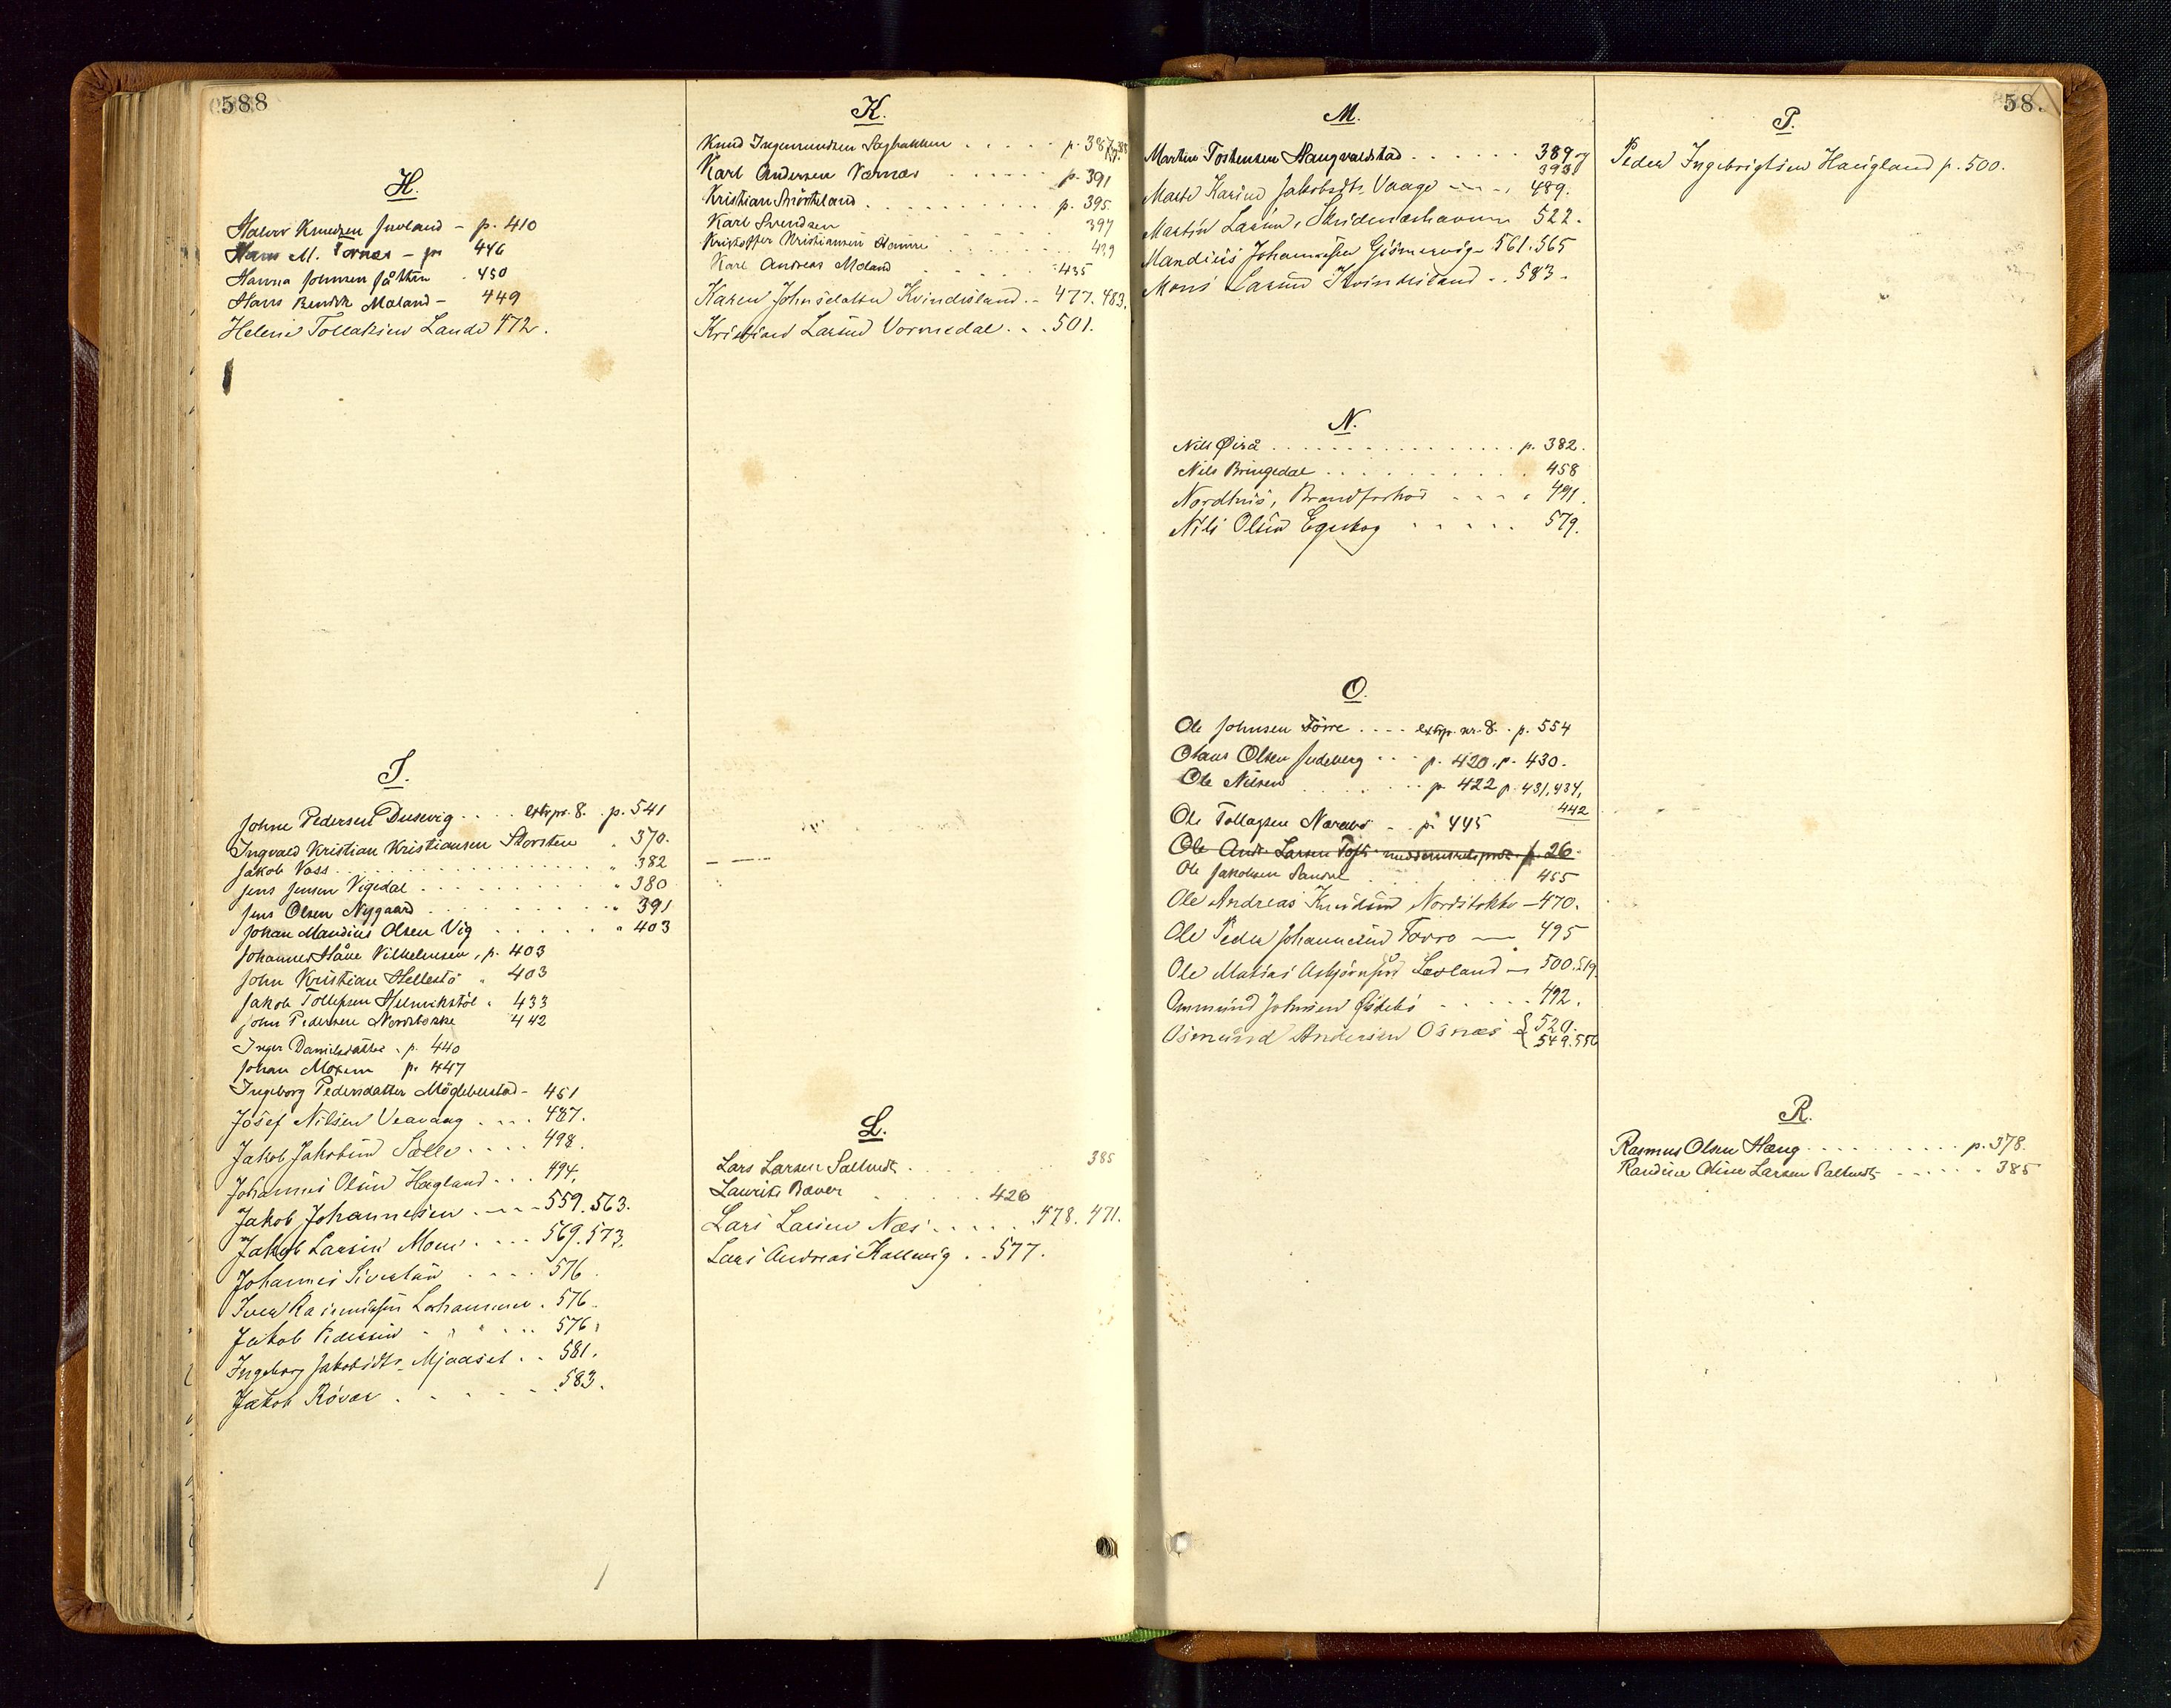 588
H.
Halvor Knudsen Jusland - p. 410
Hans M. Tornæs - p. 446
Hanna Johnsen Jåtten . 450
Hans Bendik Moland - 449
Helene Tollaksen Lande 472.
I.
Johne Pedersen Dusevig . . . . extrpr. 8. p. 541
Ingvald Kristian Kristiansen Storsten . 370.
Jakob Vass . . . . " 382
Jens Jensen Vigedal . . . . " 380
Jens Olsen Nygaard . . . . " 391
Johan Mandius Olsen Vig . . . . " 403
Johannes Håne Vilhelmsen, p. 403
John Kristian Hellestö " 403
Jakob Tollefsen Helmikstöl " 433
John Pedersen Nordstokke 442
Inger Danielsdatter . p. 440
Johan Moxem p. 447
Ingeborg Pedersdatter Möglebustad - 451
Josef Nilsen Veavaag . . . . 487.
Jakob Jakobsen Sælle . . . . 498.
Johannes Olsen Hagland . . . 494.
Jakob Johannesen . - - - 559. 563.
Jakob Larsen Moni . . . . 569. 573.
Johannes Sivertsen . . . . 576.
Iver Rasmussen Lorhammer . 576.
Jakob Pedersen - " " . . . 576.
Ingeborg Jakobsdtr. Mjaaset . . 581.
Jakob Rövær . . . . 583.
K.
Knud Ingemundsen Saghakken . . . . . p. 387
Karl Andersen Værnæs . . . . . p. 391
Kristian Snörteland . . . . p. 395
Karl Svendsen 397
Kristoffer Kristiansen Hamre . . . . 429
Karl Andreas Moland . . . . 435
Karen Johnsdatter Kvindesland . - 477. 483.
Kristian Larsen Vormedal . . . 501.
L.
Lars Larsen Sallund . . . . 385
Laurits Bæver . . . . 426
Lars Larsen Næs . . . . . 478. 471.
Lars Andreas Kallevig . . 577.
58
M.
Martin Tostensen Haugvaldstad . . . . . . 389 og
393
Malte Karine Jakobsdtr. Vaage - - - 489.
Martin Larsen, Skudeneshavn 522.
Mandius Johannessen Gismervig - 561. 565
Mons Larsen Kvindesland . . 583.
N.
Nils Öirå . . . . p. 382.
Nils Bringedal . . . . 458
Nordhus, Brandforhör - - - " 491.
Nils Olsen Egeskog . . . . . 579.
O.
Ole Johnsen Förre . . . . extrpr. nr. 8. . p. 554
Olaus Olsen Judeberg . . . p. 420, p. 430.
Ole Nilsen . . . . p. 422 p. 431, 434,
442
Ole Tollagsen Nærebö - . p. 445
Ole Andr. Larsen Toft meddomsretsprot. p. 26
Ole Jakobsen Sandve . . . . 455
Ole Andreas Knudsen Nordstokke - 470.
Ole Peder Johannesen Förre — . 495
Ole Matias Asbjörnsen Lævland - 500. 519.
Ommund Johnsen Östebö . . . . . 492.
Osmund Andersen Osnæs - { 520.
549. 556
P.
Peder Ingebrigtsen Haugland p. 500.
R.
Rasmus Olsen Hæng . . . . p. 378.
Randine Oline Larsen Sallund - . . . . . " 385